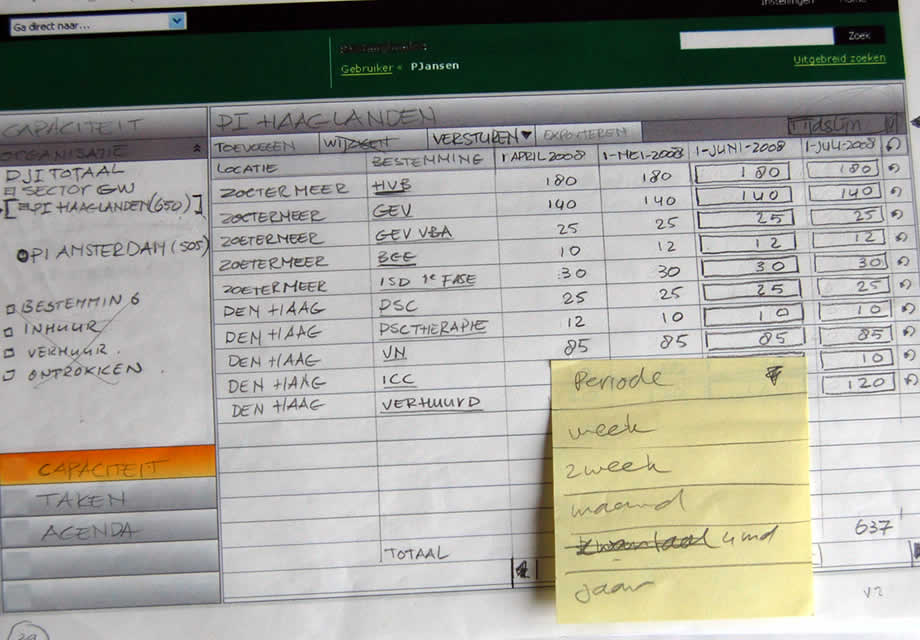 Ga direct naar...
Zoek
Gebruiker « PJansen
Uitgebreid zoeken
CAPACITEIT
PI HAAGLANDEN
Tijdslijn
ORGANISATIE
TOEVOEGEN WIJZIGEN VERSTUREN EXPORTEREN
DJI TOTAAL
SECTOR GW
[PI HAAGLANDEN(650)]
PI AMSTERDAM(505)
BESTEMMING
INHUUR
VERHUUR
ONTROKKEN
LOCATIE BESTEMMING 1 APRIL 2008 1-MEI-2008 1-JUNI-2008 1-JULI-2008
ZOETERMEER HVB 180 180 180 180
ZOETERMEER GEV 140 140 140 140
ZOETERMEER GEV VBA 25 25 25 25
ZOETERMEER BGG 10 12 12 12
ZOETERMEER ISD 1e FASE 30 30 30 30
DEN HAAG PSC 25 25 25 25
DEN HAAG PSC THERAPIE 12 10 10 10
DEN HAAG VN 85 85 85 85
DEN HAAG ICC 10
DEN HAAG VERHUURD 120
CAPACITEIT
TAKEN
AGENDA
TOTAAL 637
Periode
week
2week
maand
kwartaal 4md
jaar
V2